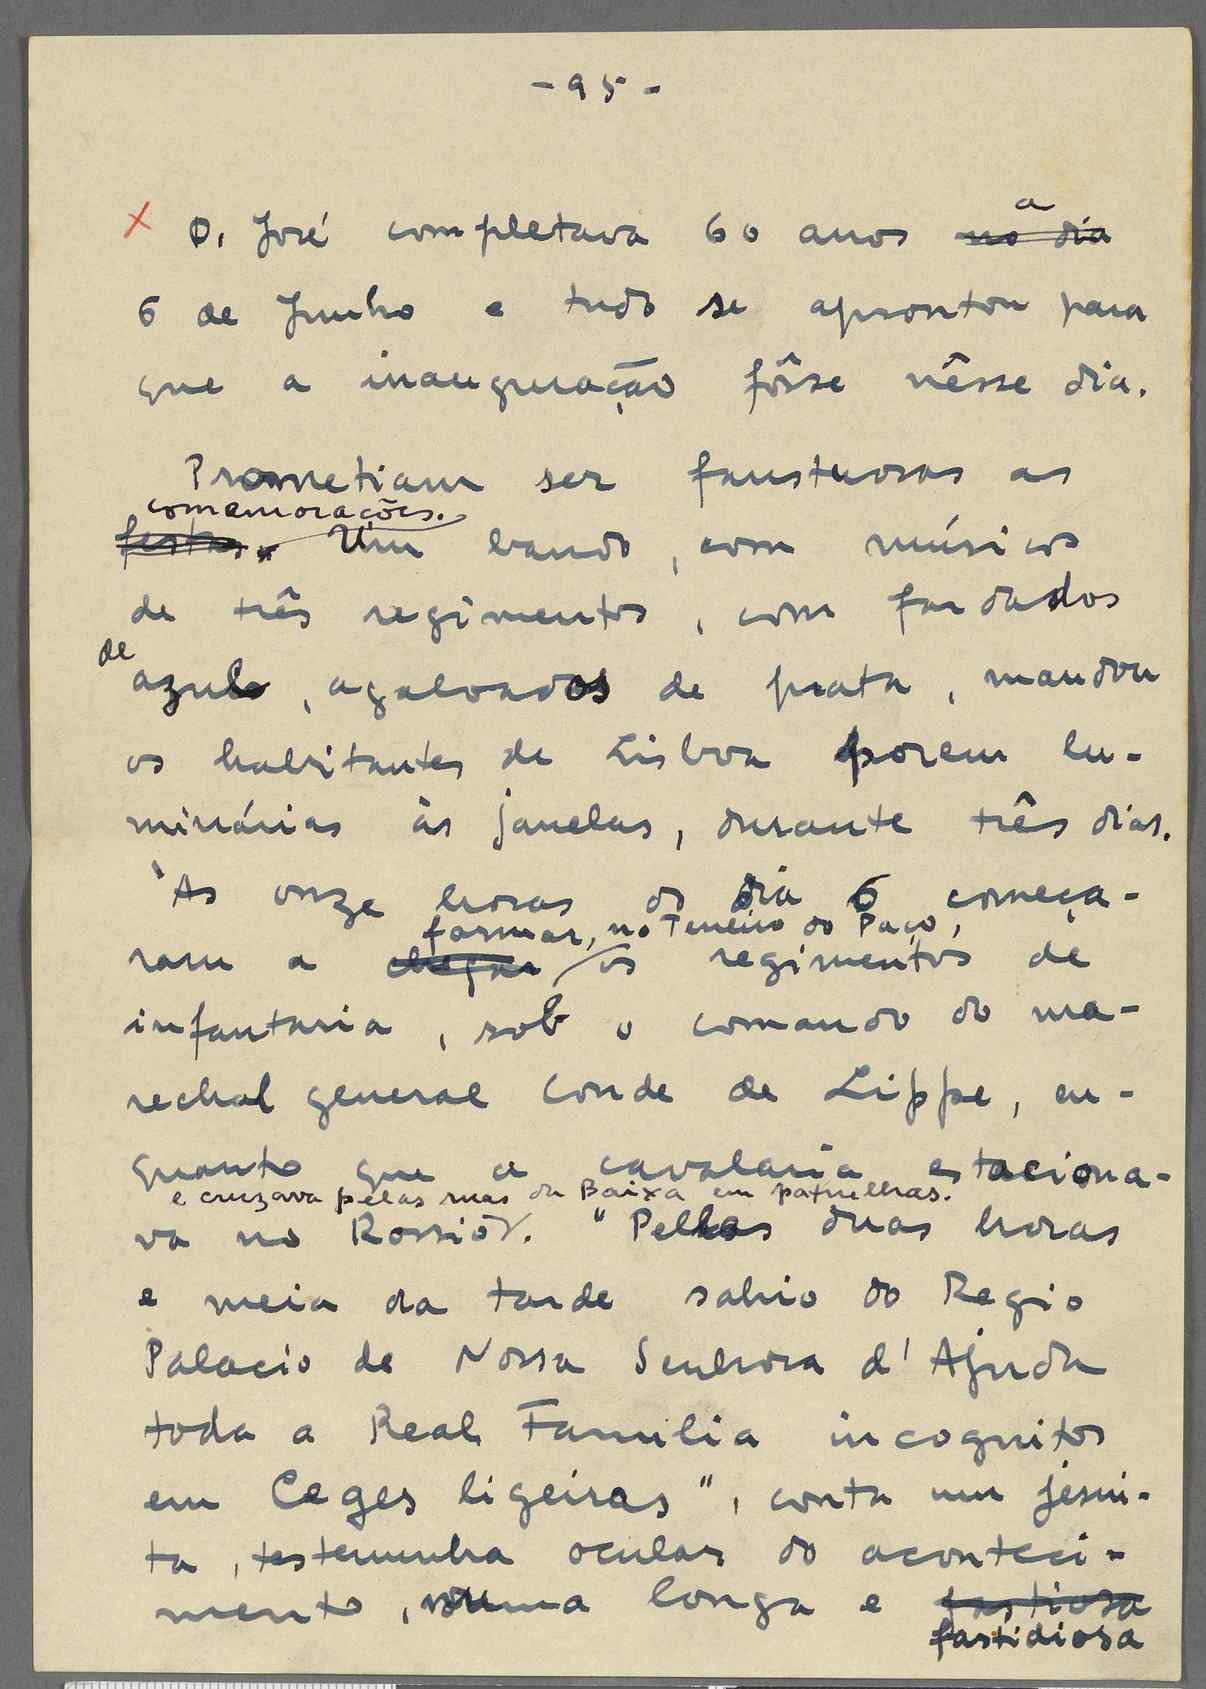 - 95 -
a
x D. José completava 60 anos no dia
6 de Junho e tudo se aprontou para
que a inauguração fôsse nêsse dia.
Prometiam ser faustuosas as
comemorações.
festas. Um bando, com músicos
de três regimentos, com fardados
de
azul, agaloados de prata, mandou
os habitantes de Lisboa porem lu-
minárias às janelas, durante três dias.
Às onze horas do dia 6 começa-
formar, no Terreiro do Paço,
ram a chegar os regimentos de
infantaria, sob o comando do ma-
rechal general conde de Lippe, en-
quanto que a cavalaria estaciona-
e cruzava pelas ruas da Baixa em patrulhas.
va no Rossio. "Pellas duas horas
e meia da tarde sahio do Regio
Palacio de Nossa Senhora d'Ajuda
toda a Real Familia incognitos
em Ceges ligeiras", conta um jesui-
ta, testemunha ocular do aconteci-
mento, numa longa e fastiosa
fastidiosa